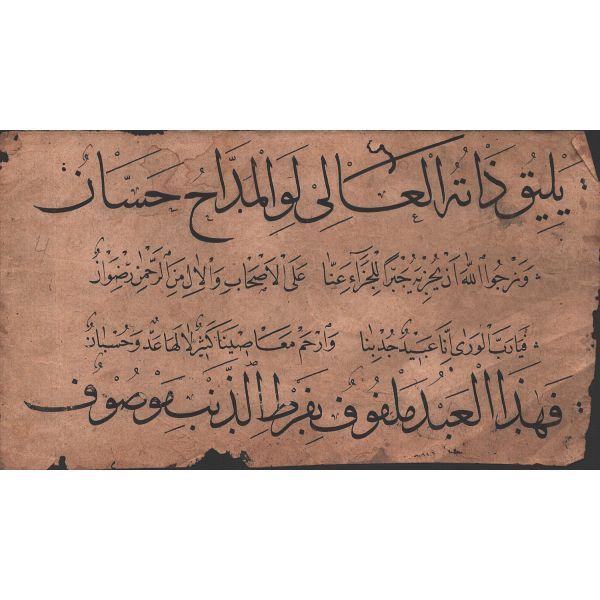 يليق ذاته العالى لو المداح حسان
ونرجوا الله ان يجزيه خيرا للجزاء عنا على الاصحاب والال من الرحمن رضوان
فيارب الورى انا عبيد جد بنا وارحم معاصينا كثير لالها عد وحسبان
فهذا العبد ملفوف بفرط الذنب موصوف